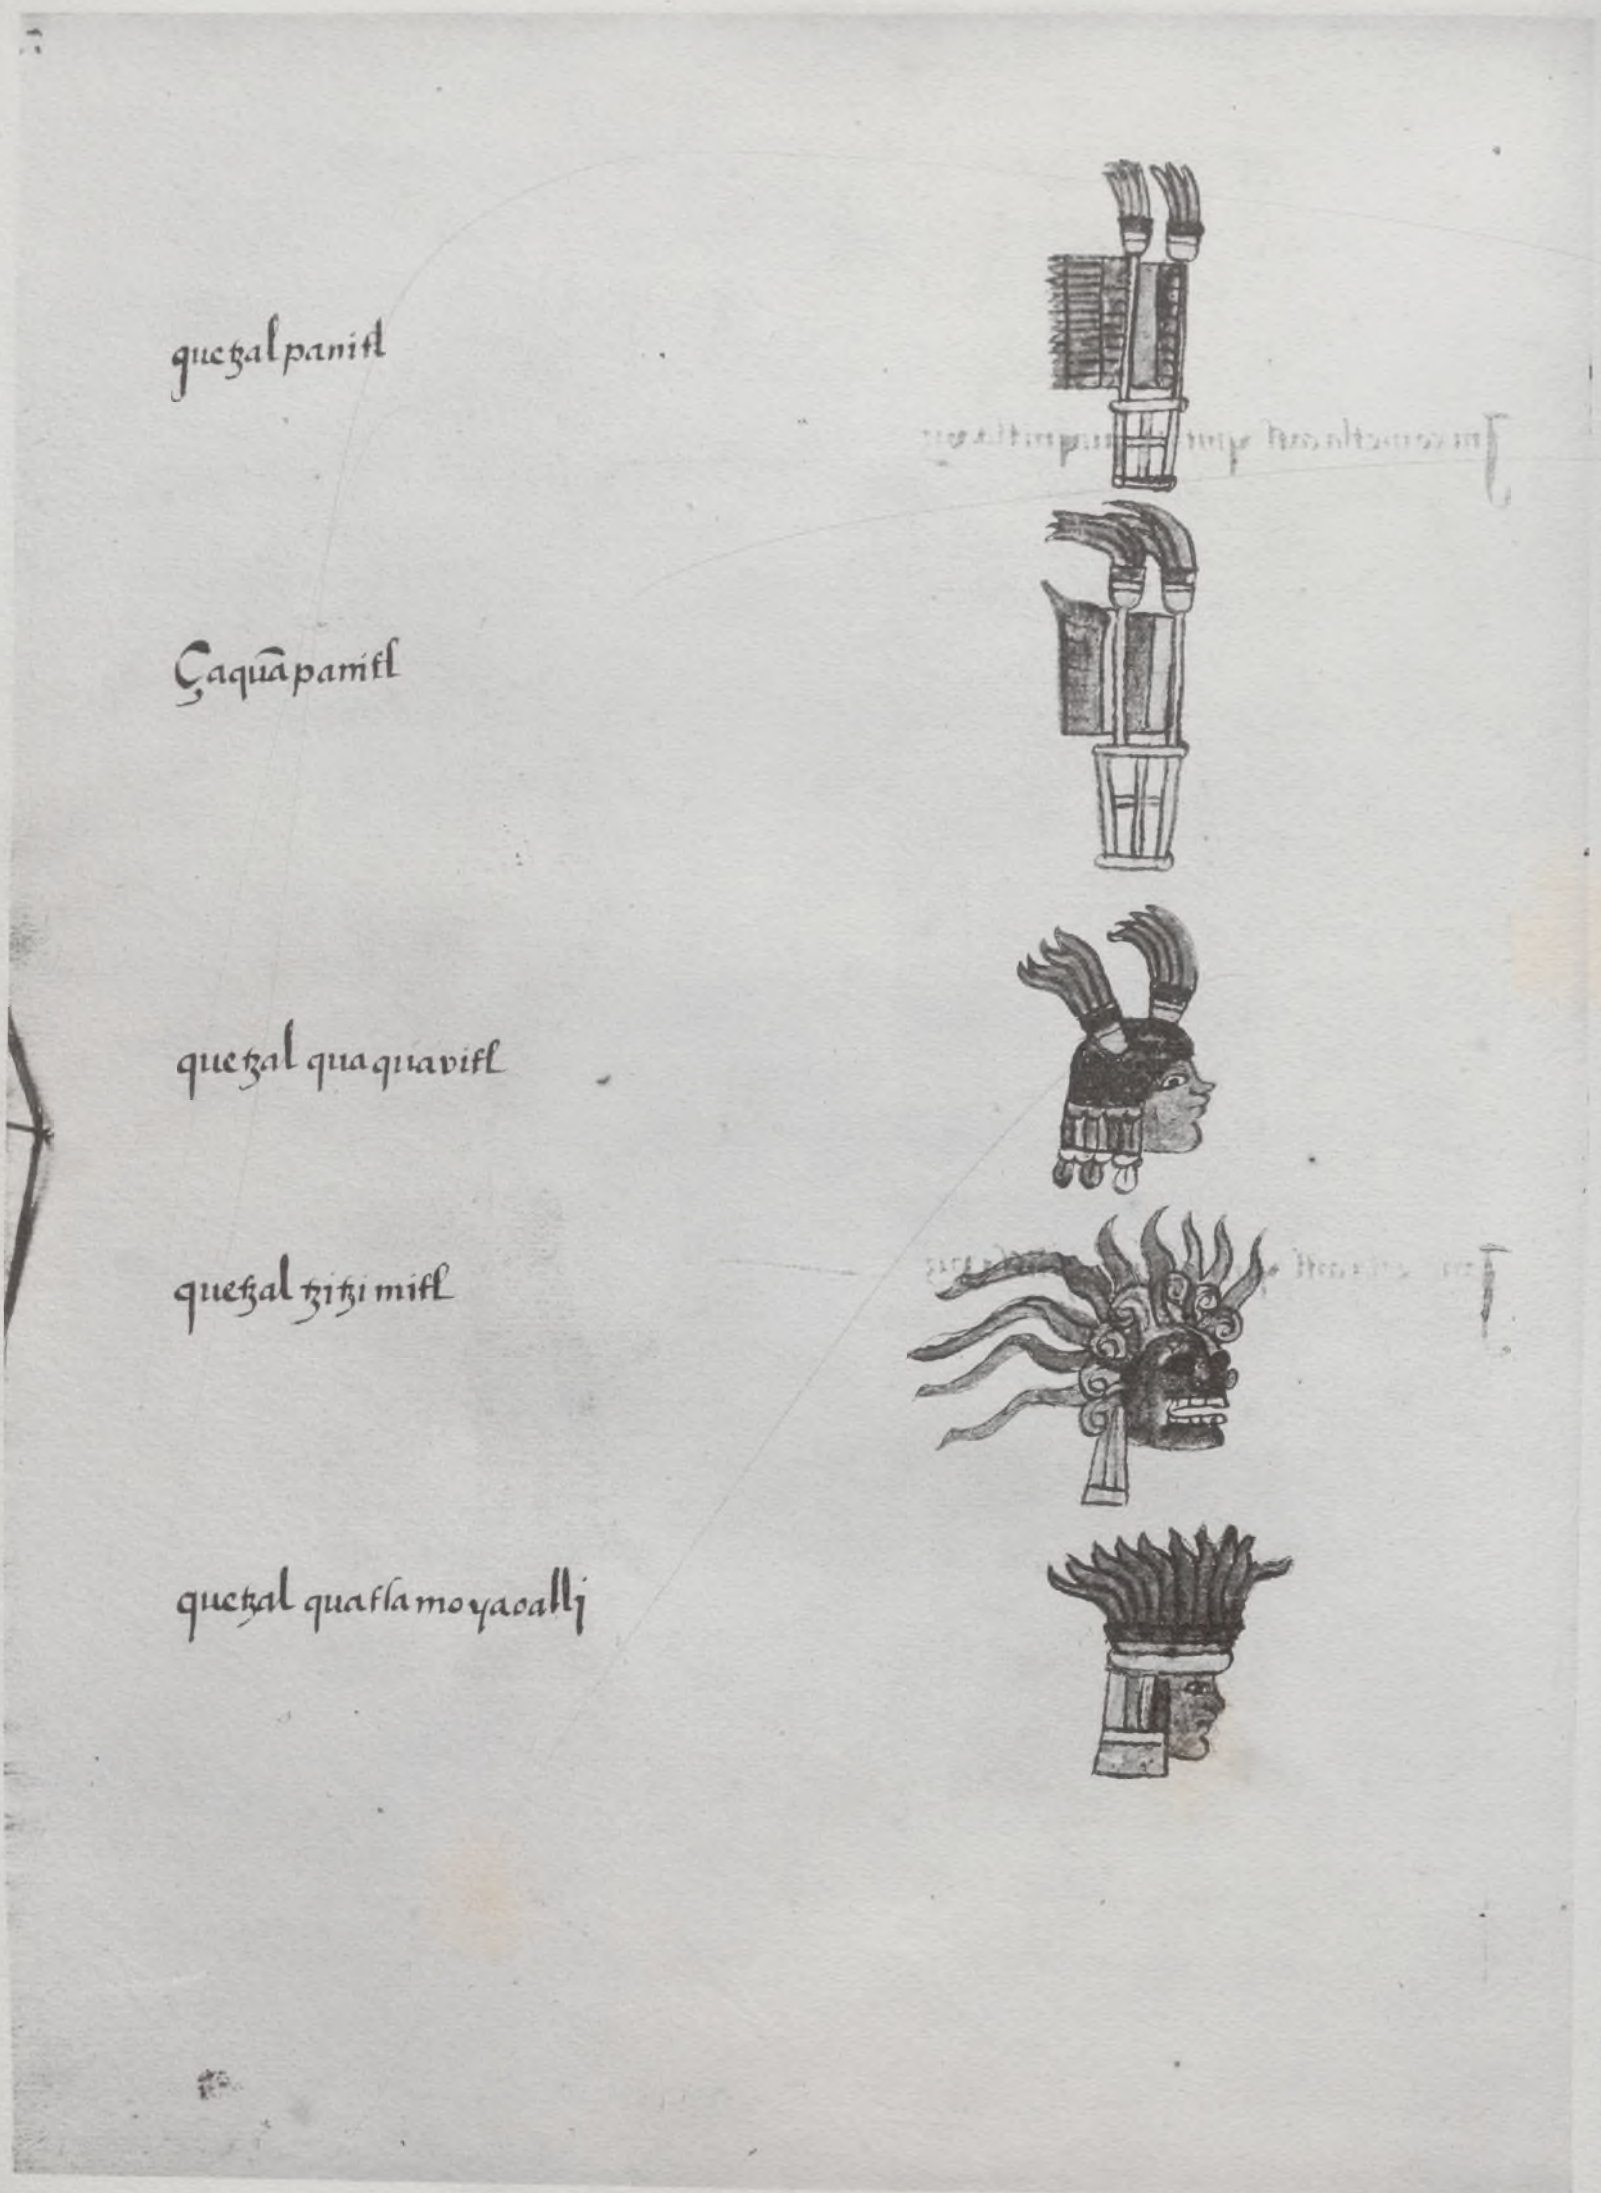 quetzalpanitl
Çaquãpanitl
quetzal quaquavitl
quetzal tzitzimitl
quetzal quatlamoyaoallj